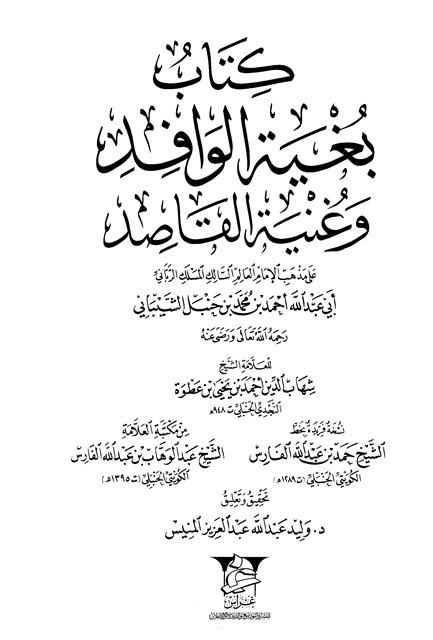 كتاب
بُغْيَة الوَافِدِ
وَغُنْيَة القَاصِدِ
على مذهب الإمام العالم السالك المسلك الرباني
أبي عبد الله أحمد بن محمد بن حنبل الشيباني
رحمه الله تعالى ورضي عنه
للعلامة الشيخ
شهاب الدين أحمد بن يحيى بن عطوة
النجدي الحنبلي ت ٩٤٨هـ
نسخة فريدة بخط
الشيخ حمد بن عبد الله الفارس
الكويتي الحنبلي (ت ١٢٨٩هـ)
من مكتبة العلامة
الشيخ عبد الوهاب بن عبد الله الفارس
الكويتي الحنبلي (ت ١٣٩٥هـ)
تحقيق وتعليق
د. وليد عبد الله عبد العزيز المنيس
غراس
للنشر والتوزيع والدعاية والإعلان